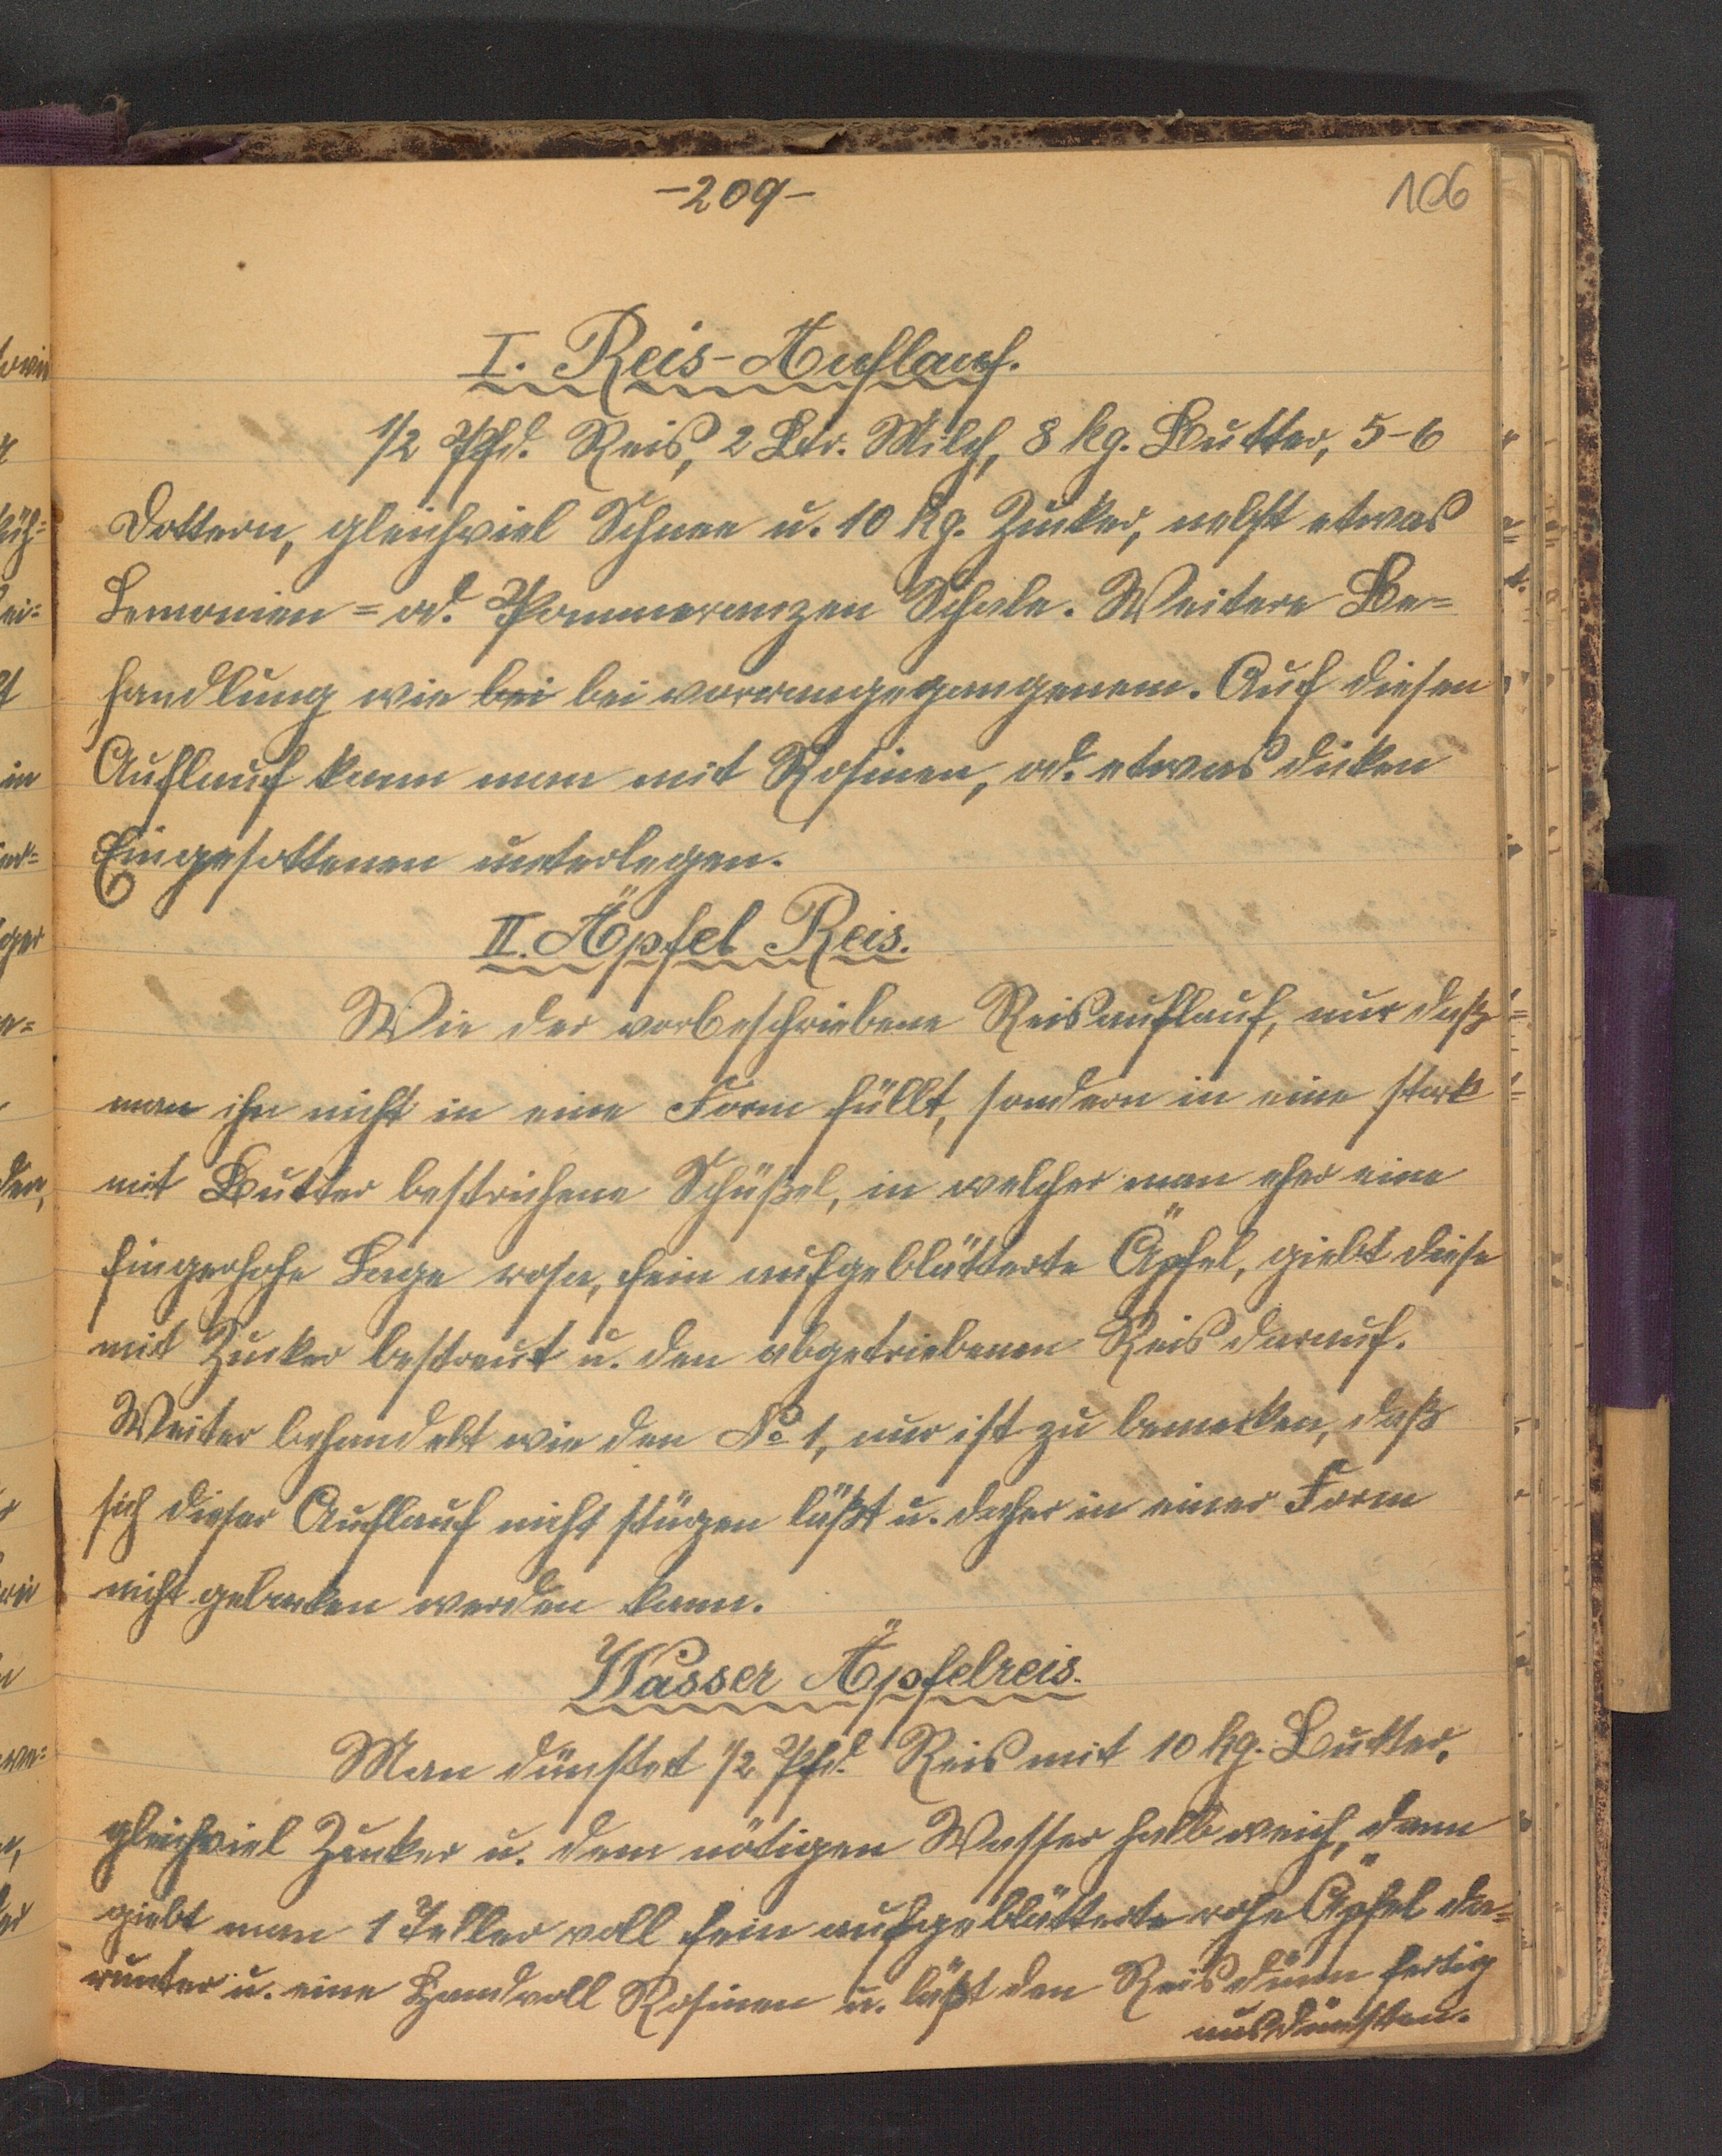 -209-
106
I. Reis-Auflauf.
1/2 Pfd. Reis, 2 Ltr. Milch, 8 kg. Butter, 5-6
Dottern, gleichviel Schnee u. 10 kg. Zucker, nebst etwas
Lemonien = od. Pommeranzen Schale. Weitere Be=
handlung wie bei bei vorrangegangenem. Auf diesen
Auflauf kann man mit Rosinen, od. etwas dicken
Eingesottenen unterlegen.
II. Äpfel Reis.
Wie der vorbeschriebene Reisauflauf, nur daß
man ihn nicht in eine Form füllt, sondern in eine stark
mit Butter bestrichene Schüßel, in welcher man eher eine
fingerhohe Lage rohe, fein aufgeblätterte Äpfel, giebt diese
mit Zucker bestreut u. den abgetriebenen Reis darauf.
Weiter behandelt wie den No 1, nur ist zu bemerken, daß
sich dieser Auflauf nicht stürzen läßt u. daher in einer Form
nicht gebacken werden kann.
Wasser Äpfelreis.
Man dünstet 1/2 Pfd. Reis mit 10 kg. Butter,
gleichviel Zucker u. dem nötigen Wasser halb weich, dann
giebt man 1 Teller voll fein aufgeblätterte rohe Äpfel da=
runter u. eine Handvoll Rosinen u. läßt den Reis dünn fertig
ausdünsten.